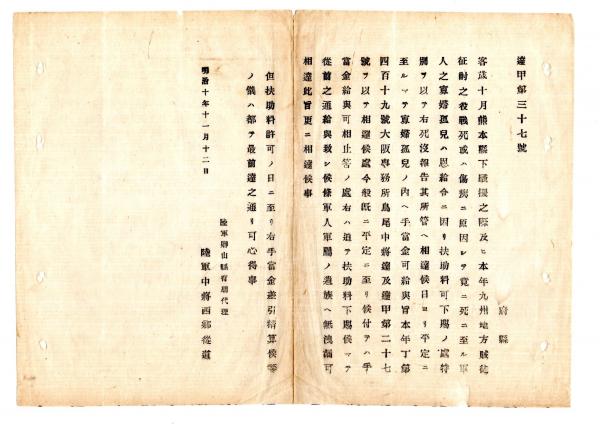 達甲第三十七號
府縣
客歳十月熊本縣下騷擾之際及ヒ本年九州地方賊徒
征討之役戰死或ハ傷痍ニ原因シテ竟ニ死ニ至ル軍
人之寡婦孤兒ハ恩給令ニ因リ扶助料可下賜ノ處特
別ヲ以テ右死沒報告其所管ヘ相達候日ヨリ平定ニ
至ルマテ寡婦孤兒ノ内ヘ手當金可給與旨本年丁第
四百十九號大阪事務所鳥尾中將達及達甲第二十七
號ヲ以テ相達候處今般既ニ平定ニ至リ候付テハ手
當金給與可相止筈ノ處右ハ追テ扶助料下賜候マテ
從前之通給與致シ候條軍人軍屬ノ遺族ヘ無洩諭可
相達此旨更ニ相達候事
但扶助料許可ノ日ニ至リ右手當金差引精算候等
ノ儀ハ都テ最前達之通リ可心得事
明治十年十一月十二日
陸軍卿山縣有朋代理
陸軍中將西郷從道